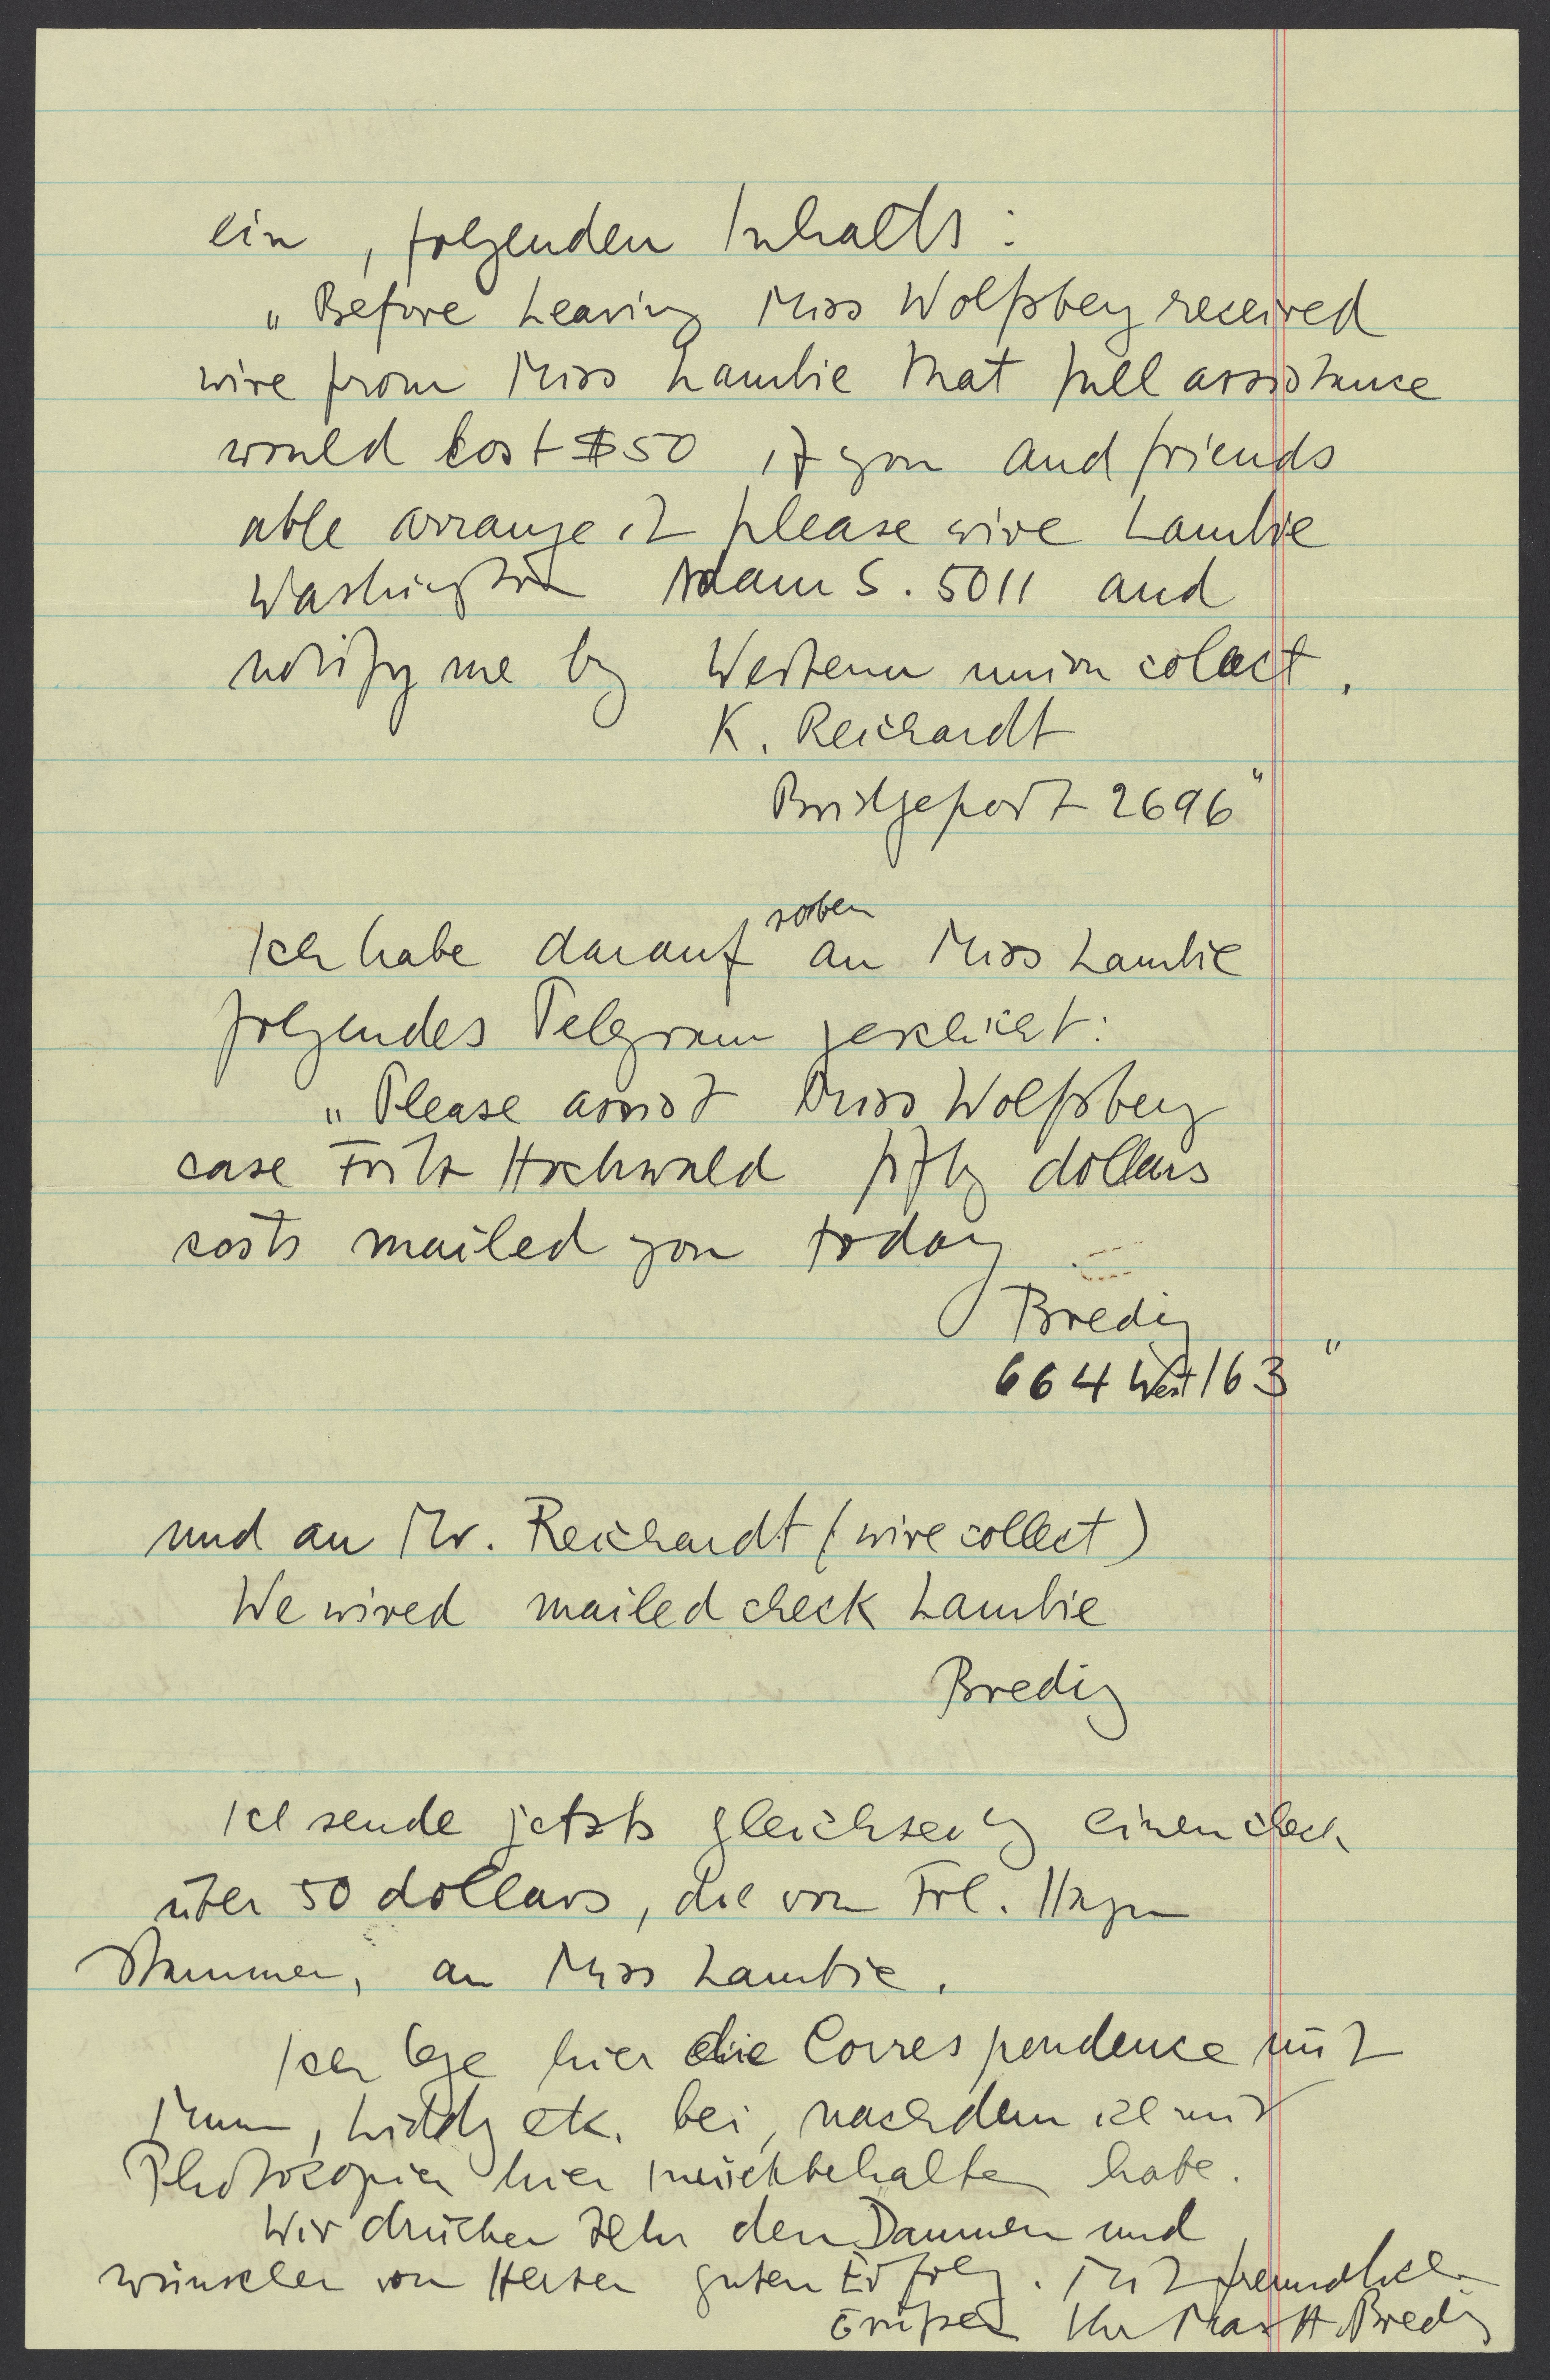 ein, folgenden Inhalts:
„Before leaving Miss Wolfsberg received
wire from Miss Lambie that full assistance
would cost $50 if you and friends
able arrange it please wire Lambie
Washington Adam S. 5011 and
notify me by Western union colect.
K. Reichardt
Bridgeport 2696"
soeben
Ich habe darauf an Miss Lambie
folgendes Telegramm geschickt:
„Please assist Miss Wolfsberg
case Fritz Hochwald fifty dollars
costs mailed you today
Bredig
664 West 163"
und an Mr. Reichardt (wire collect)
We wired mailed check Lambie
Bredig
Ich sende jetzt gleichzeitig einen check
über 50 dollars, die von Frl.
stammen, an Miss Lambie.
Ich lege hier die Correspondence mit
etc. bei, nachdem ich mir
Photokopien hier zurückbehalten habe.
Wir drücken sehr den Daumen und
wünschen von Herzen guten Erfolg. Mit freundlichen
Grüßen Ihr Max A. Bredig